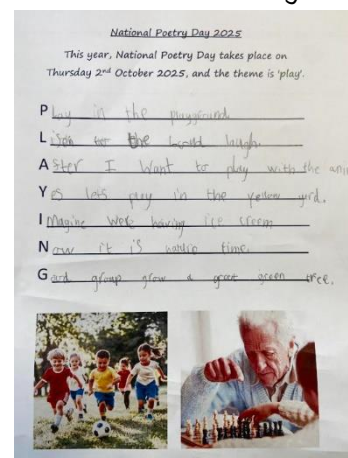 National Poetry Day 2025
This year, National Poetry Day takes place on
Thursday 2nd October 2025, and the theme is 'play'.
Play in the playground.
for the Loud laugh.
After I want to play with the
Yes lets play in the yellow yard.
Imagine were having ice creem
Now it is time.
Gard group grow a great green tree.